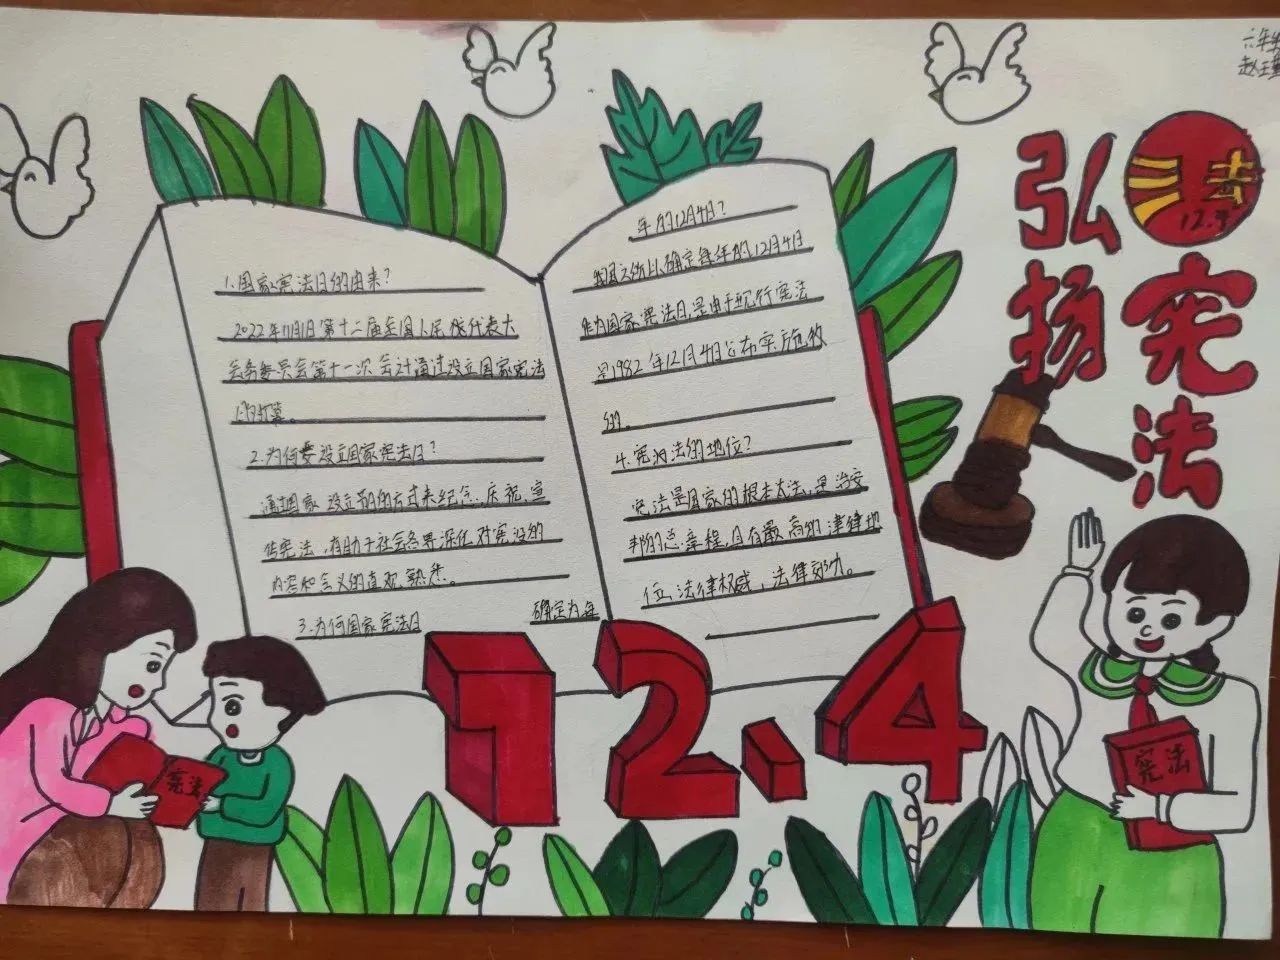 弘扬
宪法
12.4
1.国家宪法日的由来?
2022年11月1日第十二届全国人民代代表大
会务委员会第十一次会计通过设立国家宪法
2.为何要设立国家宪法日?
通过国家设立节的方式来纪念、庆祝、宣
传宪法,有助于社会各界深任对宪法的
内容和含义的直观熟悉。
3.为何国家宪法日
确定为每
年的12月4日?
我国之所以确定每年的12月4日
作为国家宪法日,是由于现行宪法
是1982年12月4日公布实施致
的。
4.宪法的地位?
宪法是国家的根本大法,是治安
邦的总章程,具有最高的津律地
位,法律权威,法律效力。
12.4
宪法
宪法